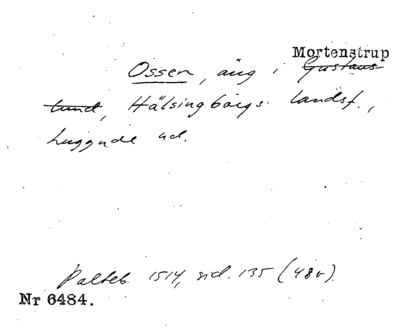 Mortenstrup
Ossen, äng i Gustavs-
lund, Hälsingborgs landsf.,
Luggude hd.
Palteb. 1514, sid. 135 (48v).
Nr 6484.